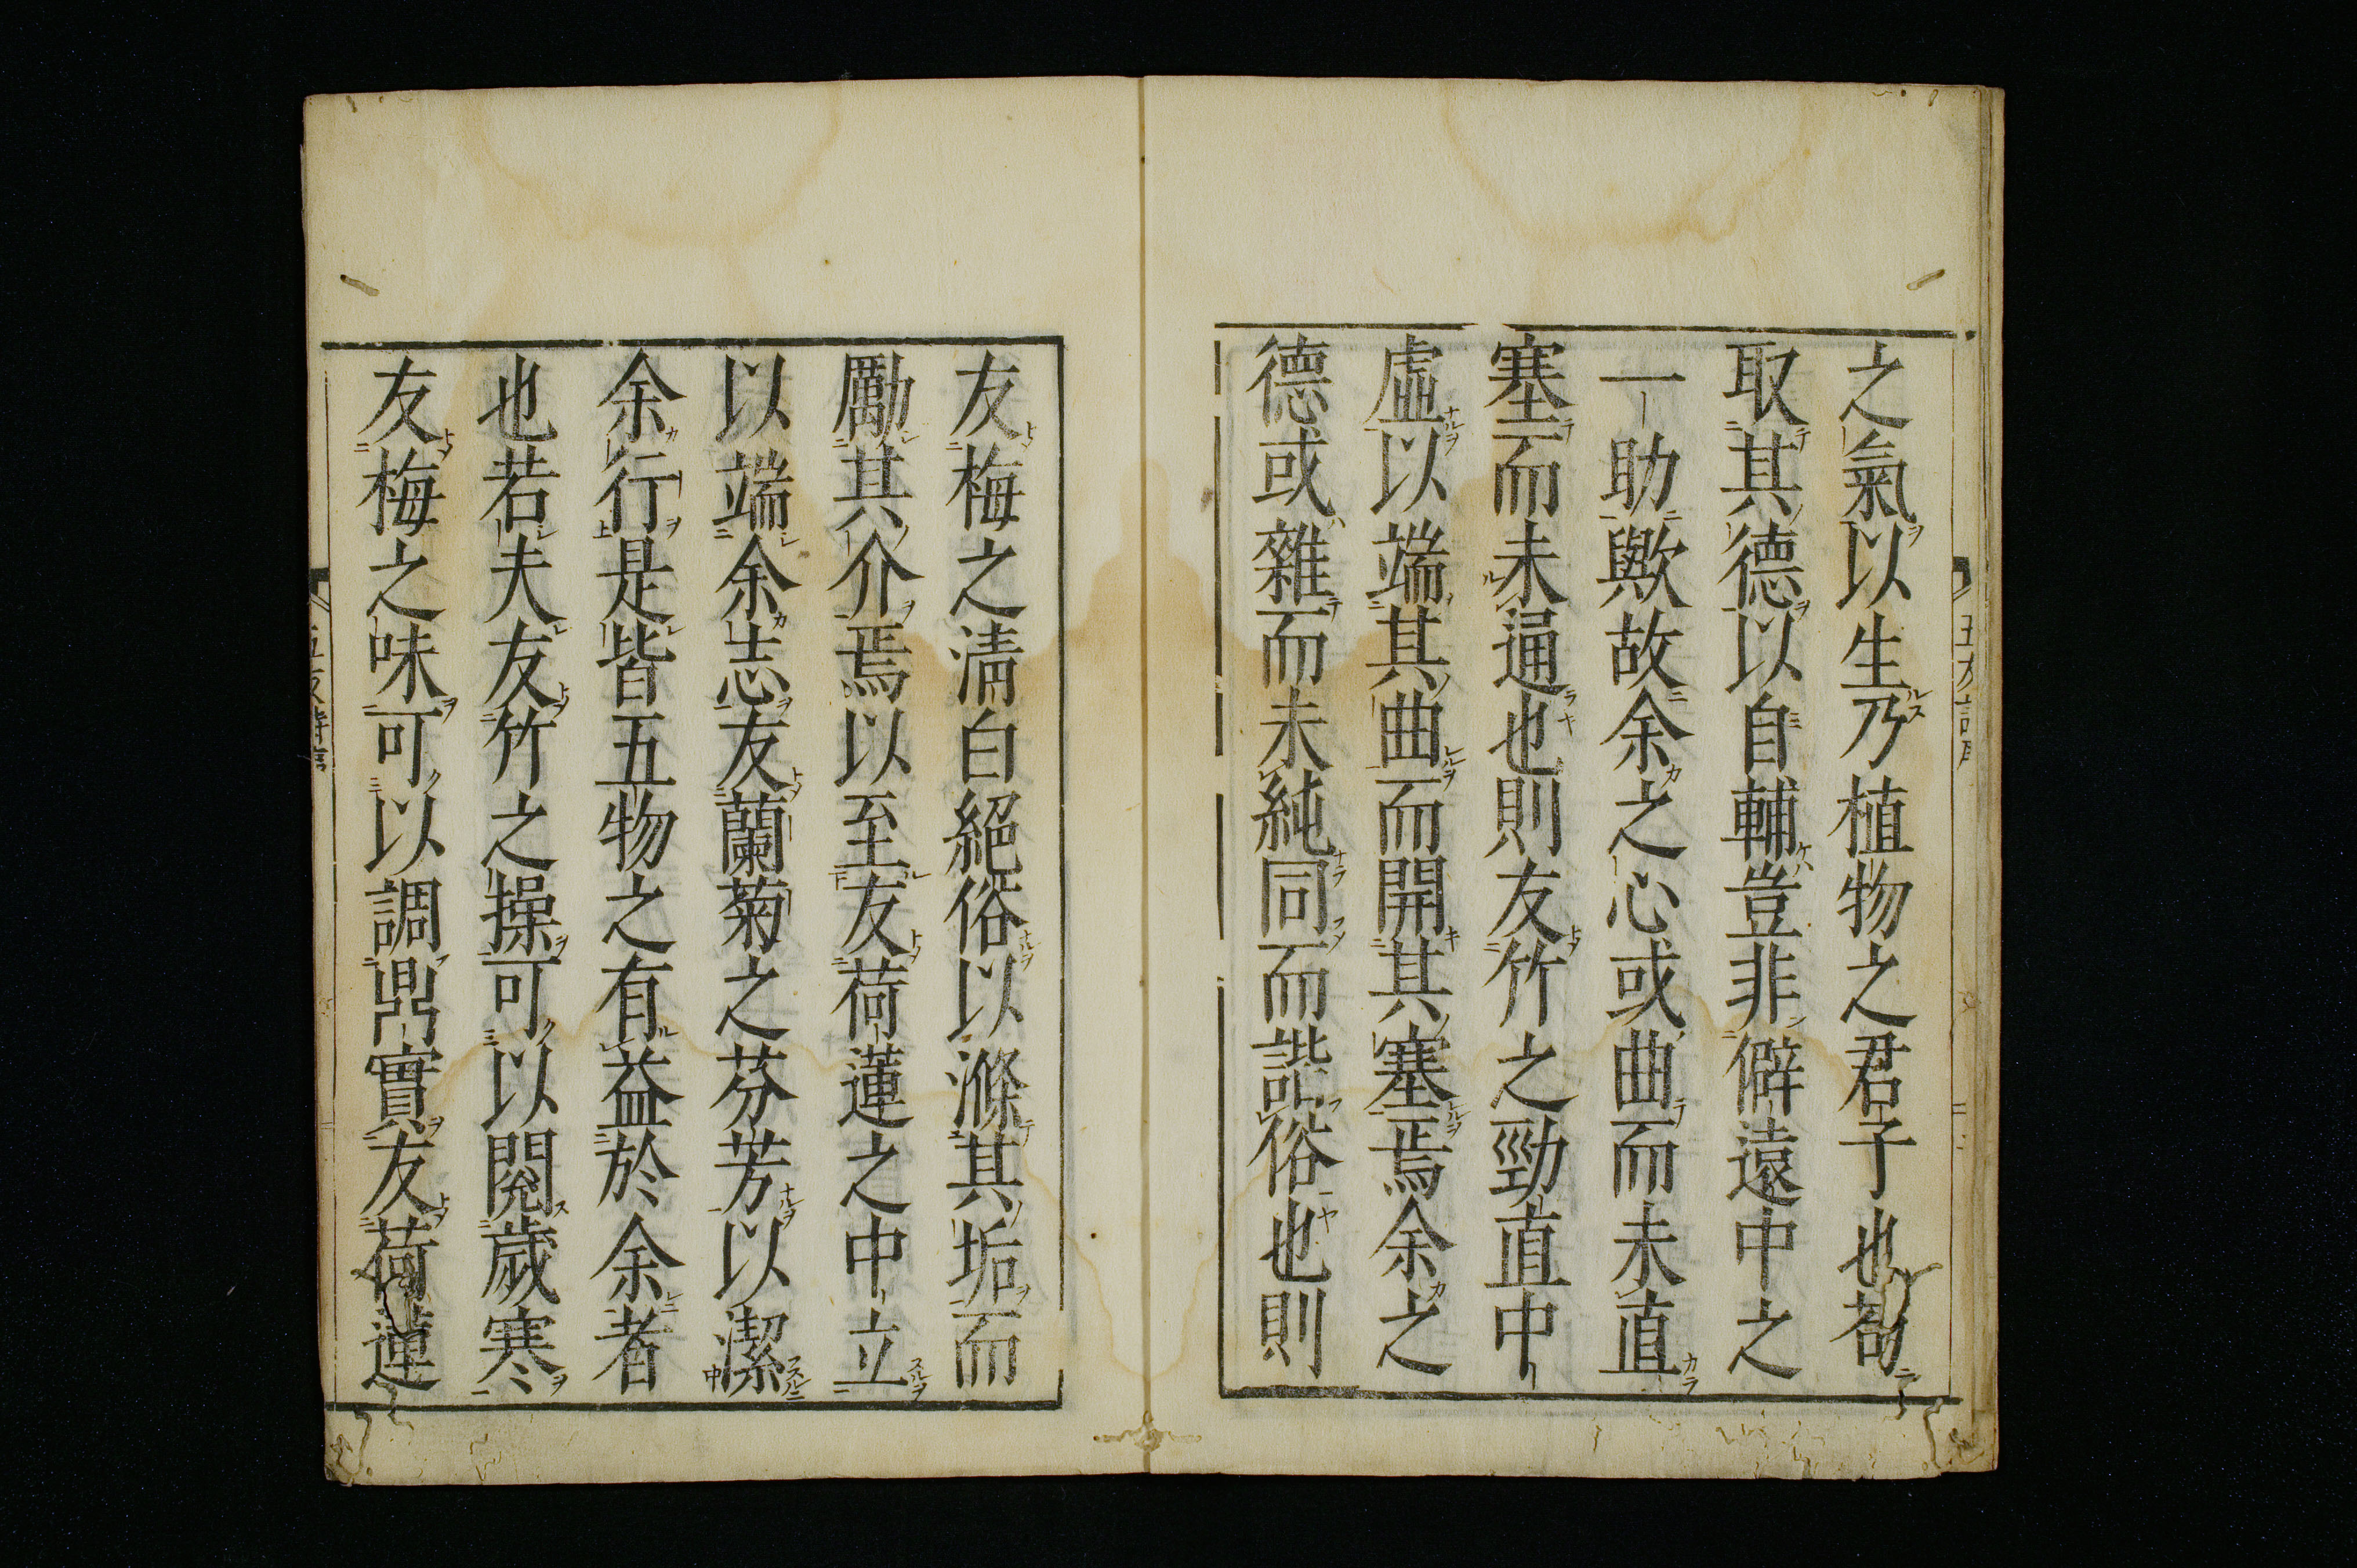 之氣以生乃植物之君子也苟
取其德以自輔豈非僻遠中之
一助歟故余之心或曲而未直
塞而未逼也則友竹之勁直中
虛以端其曲而開其塞焉余之
德或雜而未純同而諧俗也則
友梅之清白絕俗以滌其垢而
勵其介焉以至友荷蓮之中立
以端余志友蘭菊之芬芳以潔
余行是皆五物之有益於余者
也若夫友竹之操可以閱歲寒
友梅之味可以調鼎實友荷蓮